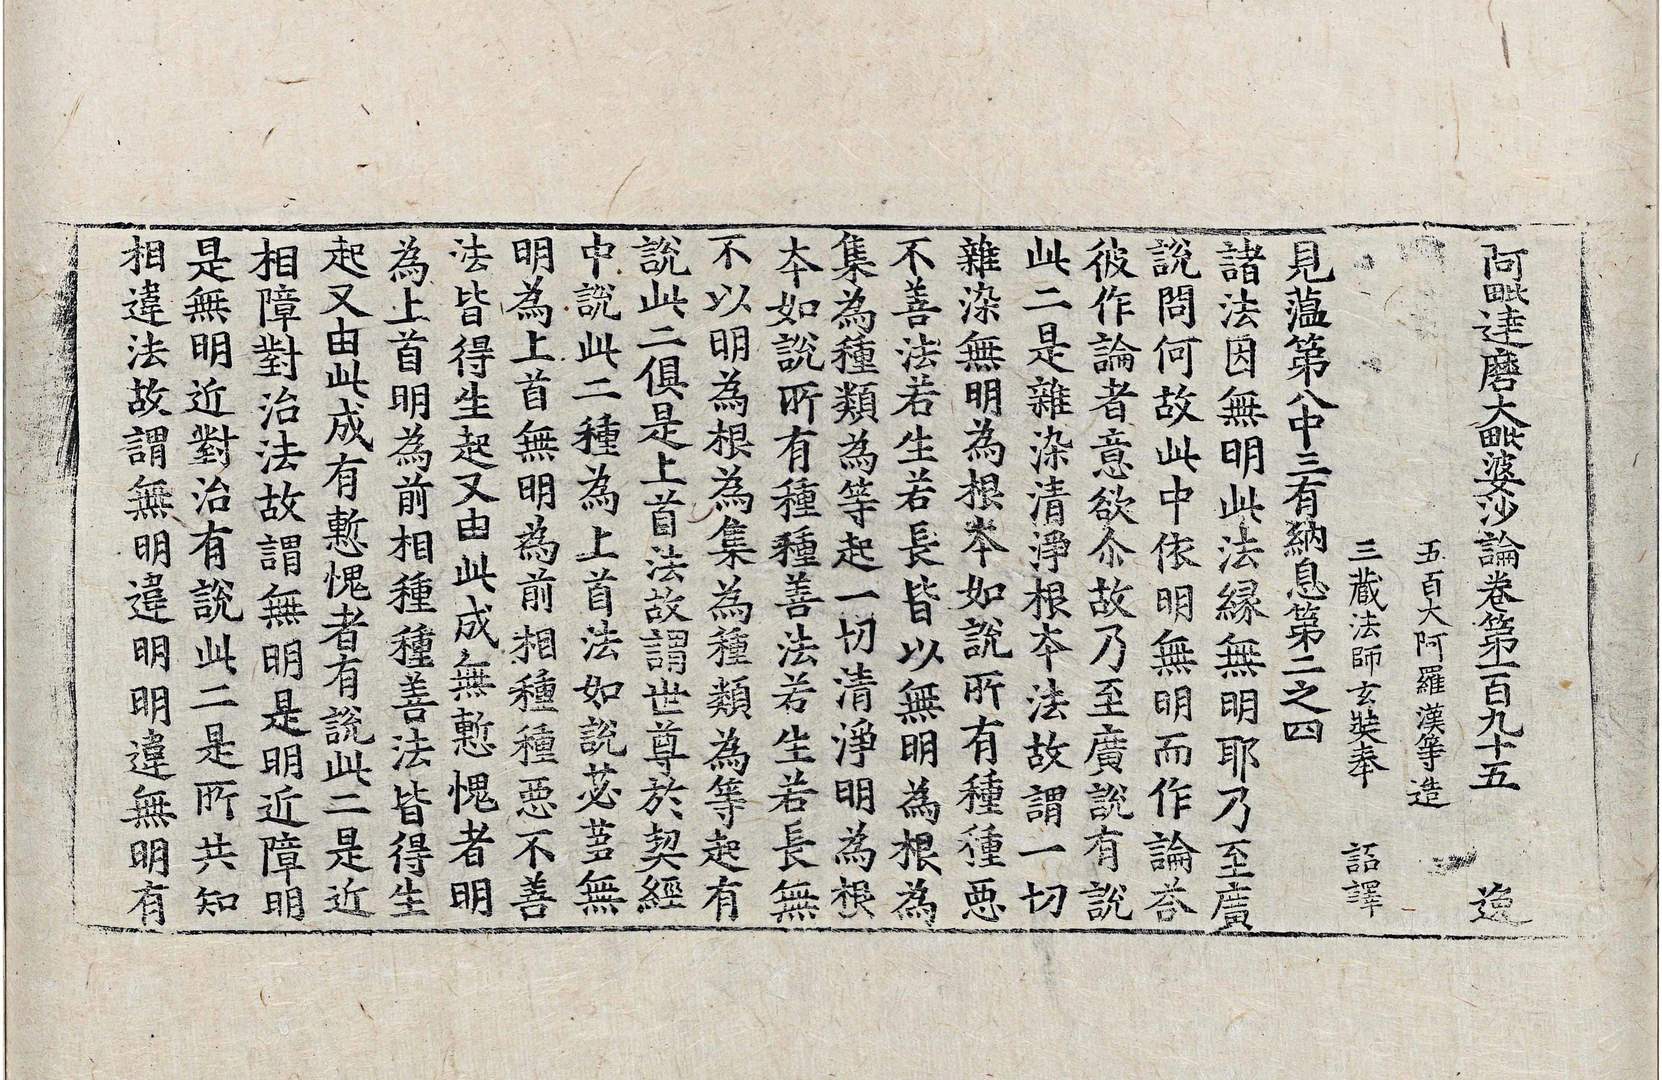 阿毗達磨大毗婆沙論卷第一百九十五 逸
五百大阿羅漢等造
三藏法師玄奘奉 詔譯
見蘊第八中三有納息第二之四
諸法因無明此法緣無明耶乃至廣
說問何故此中依明無明而作論荅
彼作論者意欲尒故乃至廣說有說
此二是雜染清淨根夲法故謂一切
雜染無明為根夲如說所有種種惡
不善法若生若長皆以無明為根為
集為種類為等起一切清淨明為根
夲如說所有種種善法若生若長無
不以明為根為集為種類為等起有
說此二俱是上首法故謂世尊於契經
中說此二種為上首法如說苾芻無
明為上首無明為前相種種惡不善
法皆得生起又由此成無慙愧者明
為上首明為前相種種善法皆得生
起又由此成有慙愧者有說此二是近
相障對治法故謂無明是明近障明
是無明近對治有說此二是所共知
相違法故謂無明違明明違無明有